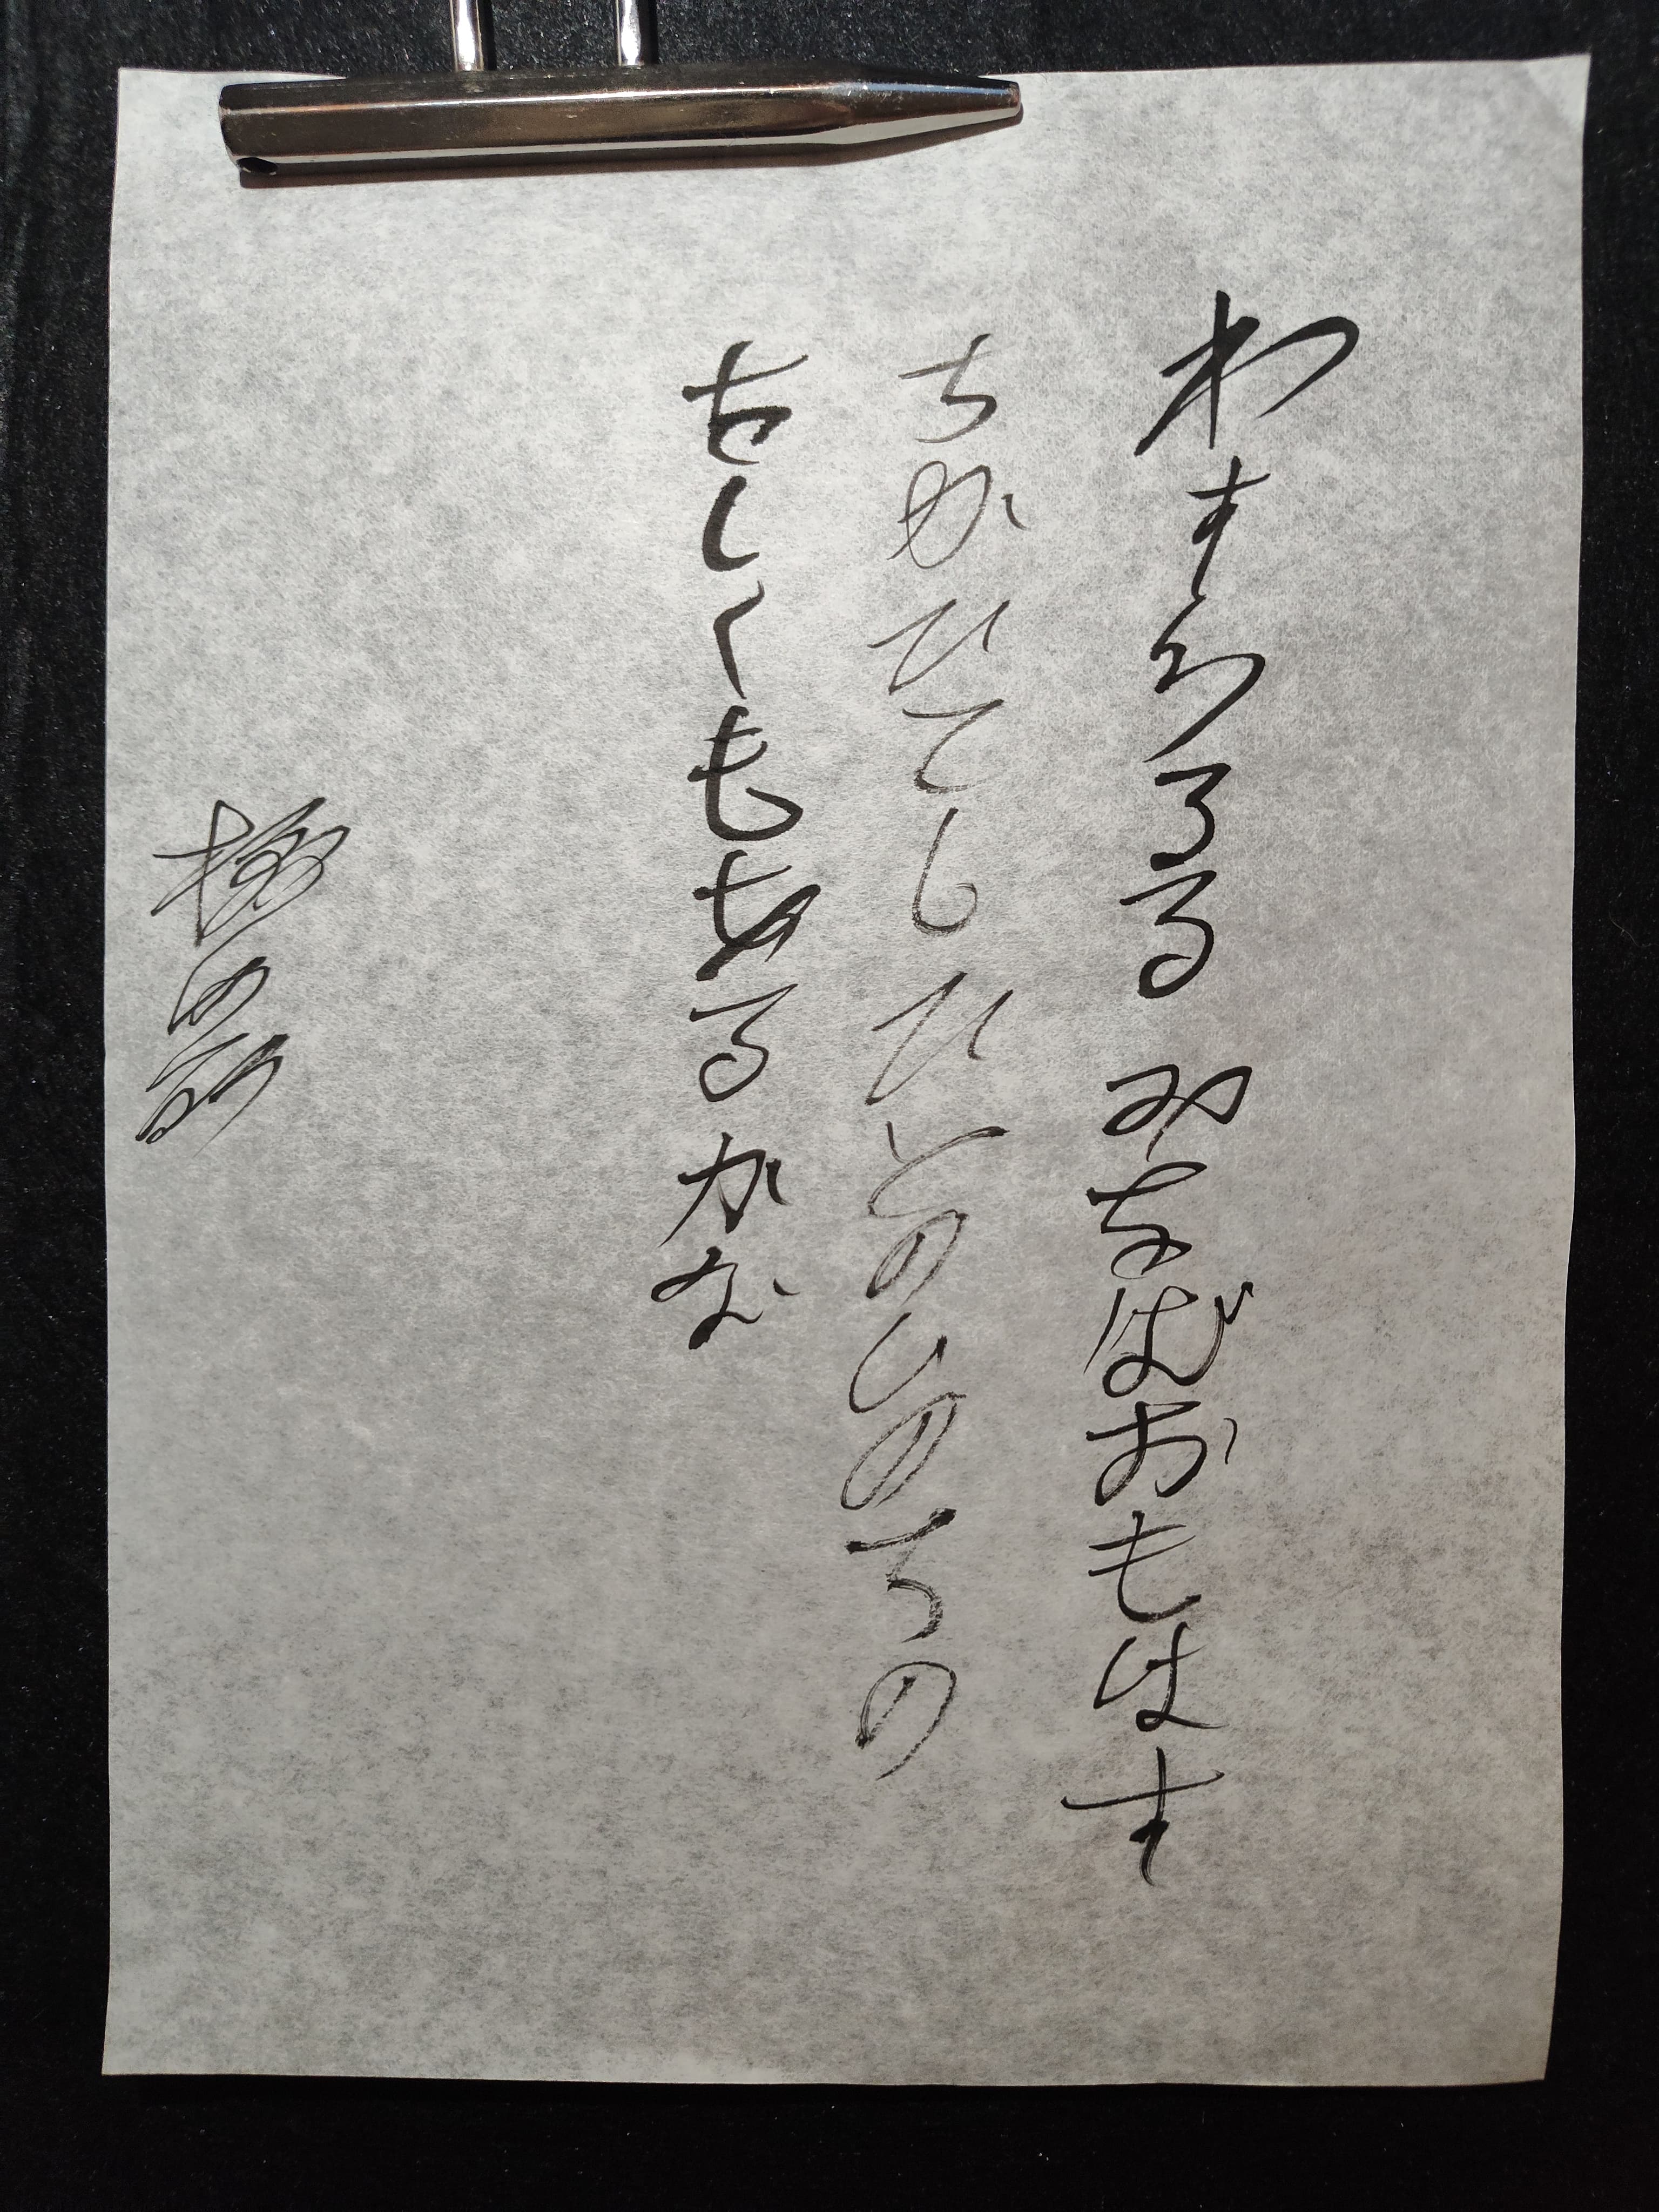 わすらるるみをばおもはす
ちかひてしひとのいのちの
をしくもあるかな